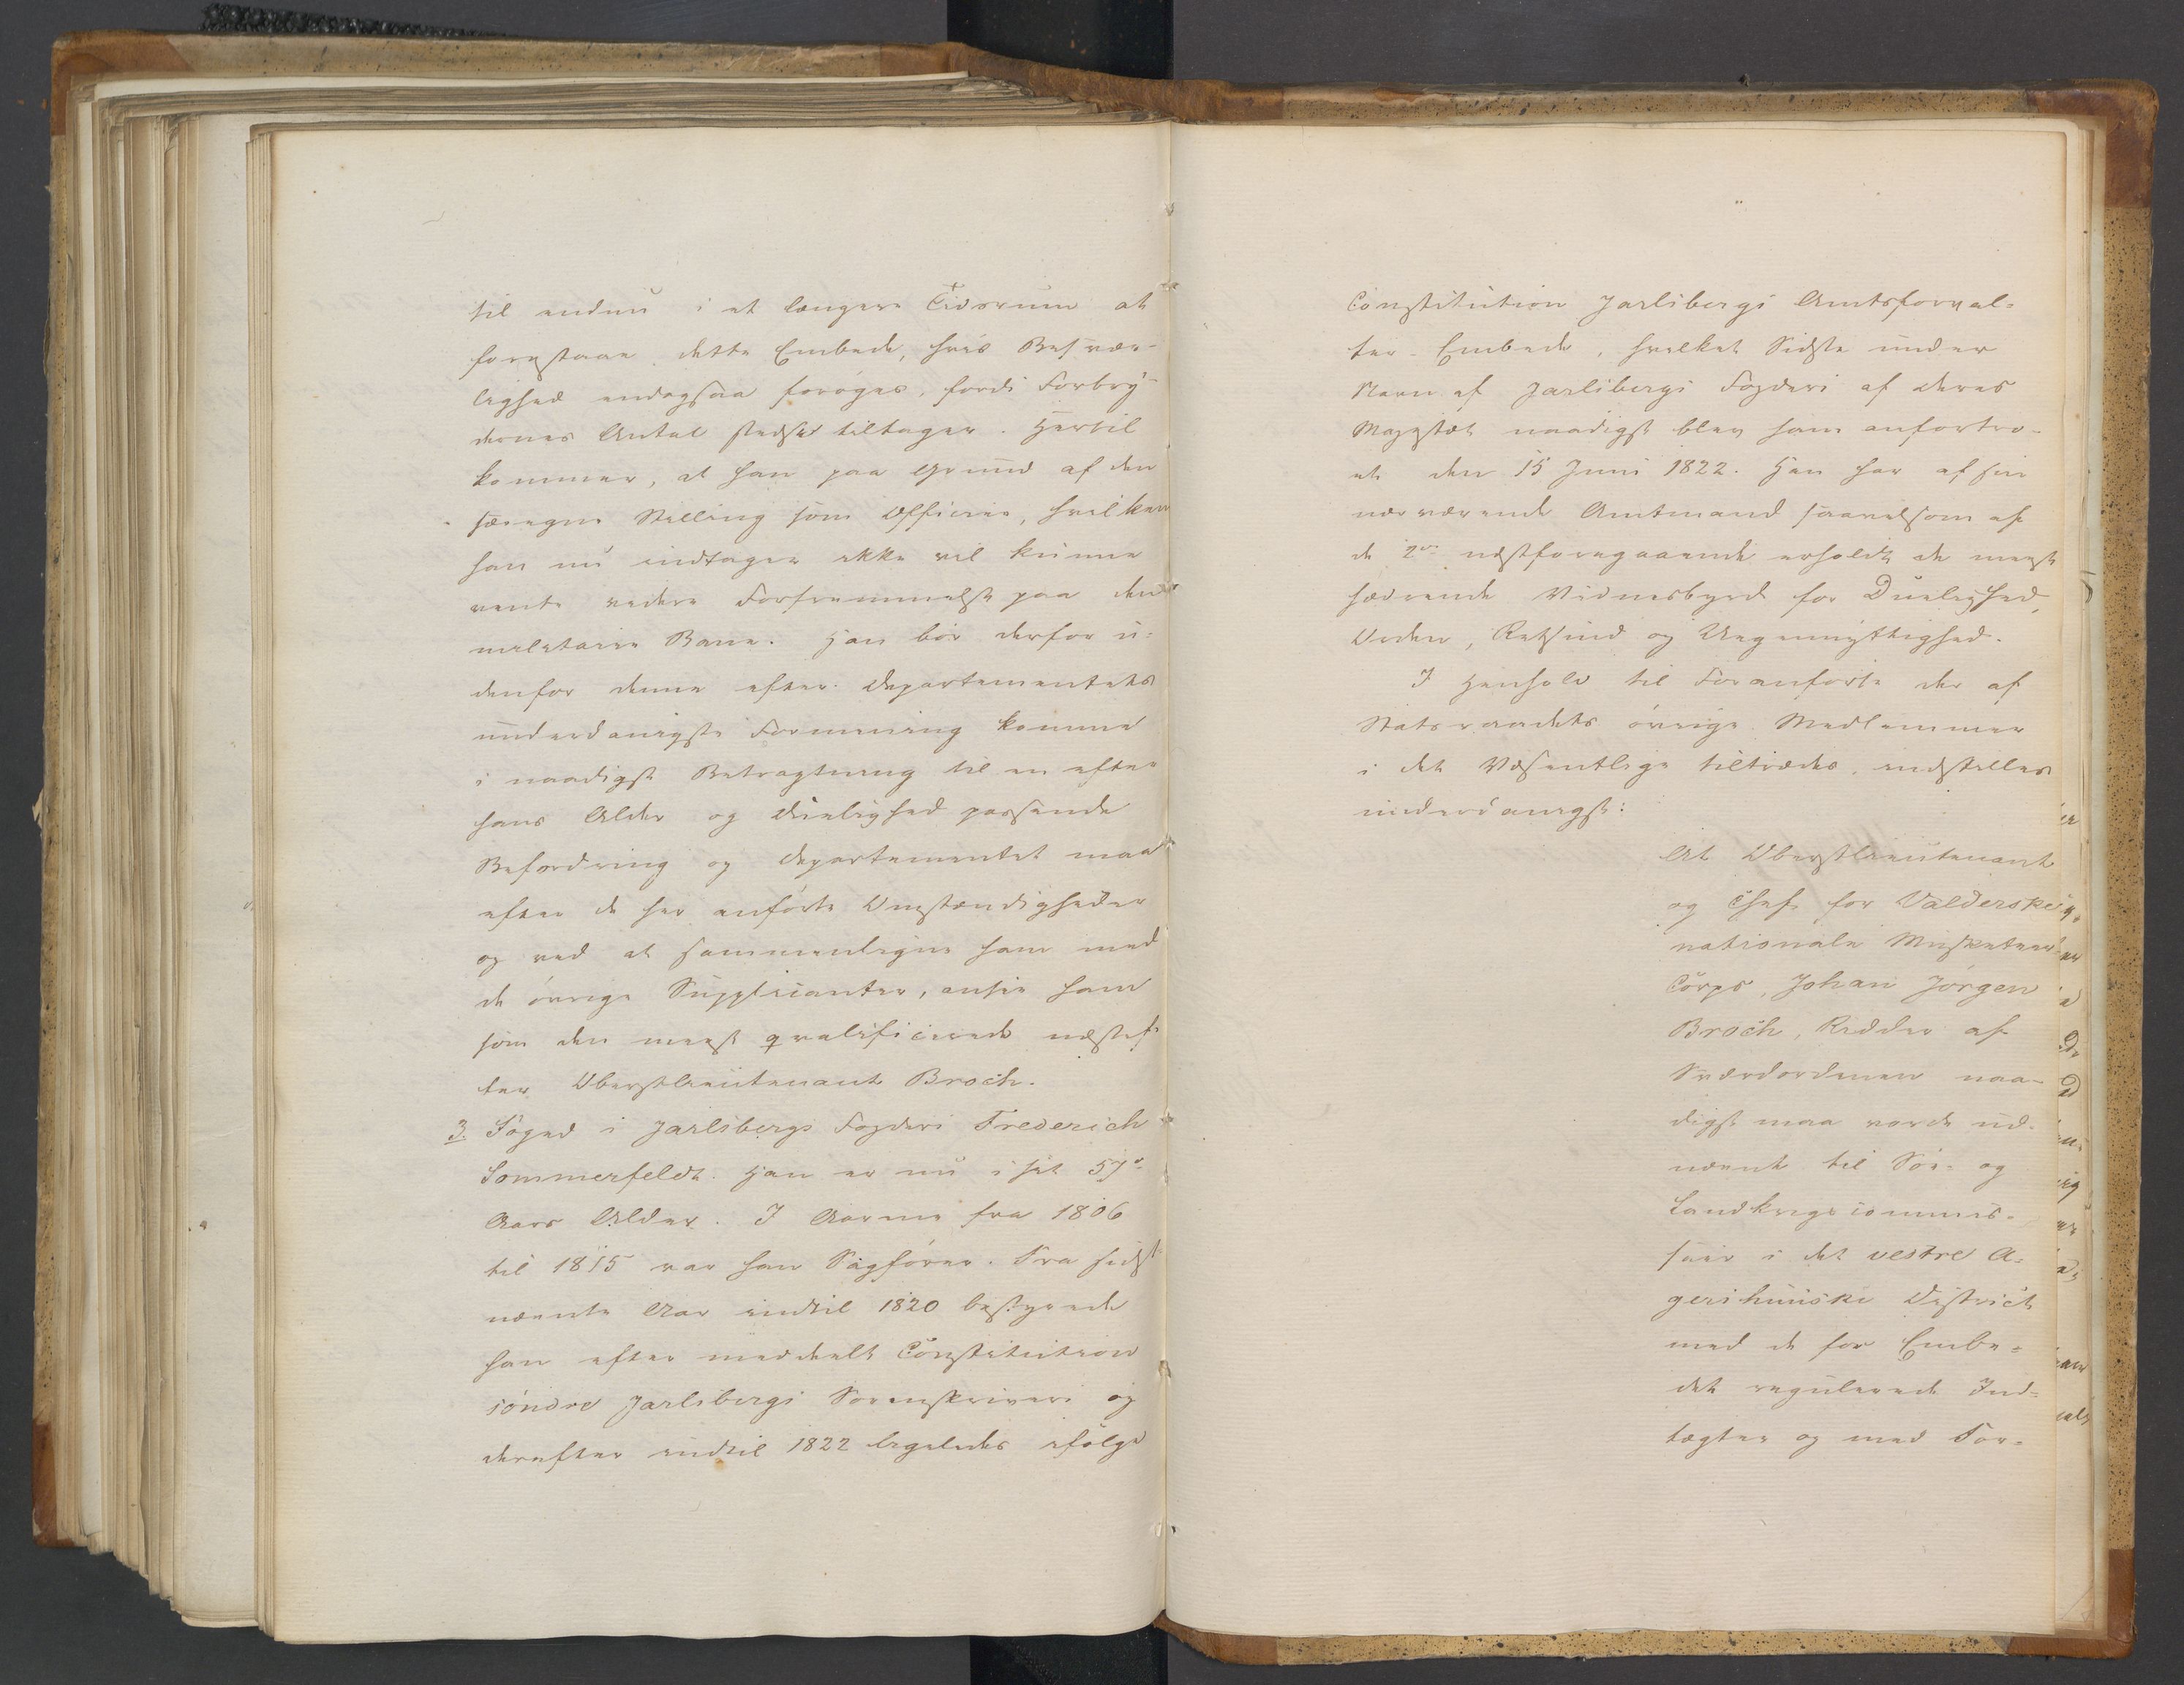 til endnu i et længere Tidsrum at
forestaae dette Embede, hvis Besvær-
lighed endogsaa foröges, fordi Forbry-
dernes Antal stedse tiltager. Hertil
kommer, at han paa Grund af den
særegne Stilling som Officier, hvilken
han nu indtager ikke vil kunne
vente videre Forfremmelse paa den
militaire Bane. Han bör derfor u-
denfor denne efter Departementets
underdanigste Formening komme
i naadigst Betragtning til en efter
hans Alder og Duelighed passende
Befordring og Departementet maa
efter de her anförte Omstændigheder
og ved at sammenligne ham med
de övrige Supplicanter, ansee ham
som den meest qvalificerede næstef-
ter Oberstlieutenant Broch.
3. Foged i Jarlsbergs Fogderi Frederich
Sommerfeldt. Han er nu i sit 57de
Aars Alder. I Aarene fra 1806
til 1815 var han Sagförer. Fra sidst
nævnte Aar indtil 1820 bestyrede
han efter meddeelt Constitution
söndre Jarlsbergs Sorenskriveri og
derefter indtil 1822 ligeledes ifölge
Constitution Jarlsbergs Amtsforval-
ter-Embede, hvilket Sidste under
Navn af Jarlsbergs Fogderi af Deres
Majestæt naadigst blev ham anfortro-
et den 15 Juni 1822. Han har af sin
nærværende Amtmand saavelsom af
de 2de næstforegaaende erholdt de meest
hædrende Vidnesbyrd for Duelighed,
Orden, Retsind og Uegennyttighed.
I Henhold til Foranförte der af
Statsraadets övrige Medlemmer
i det Væsentlige tiltrædes, indstilles
underdanigst:
At Oberstlieutenant
og Chef for Valderske
nationale Musketeer
Corps, Johan Jörgen
Broch, Ridder af
Sværdordenen naa-
digst maa vorde ud-
nævnt til Söe- og
Landkrigscommis-
sair i det vestre A-
gershuuske District
med de for Embe-
det regulerede Ind-
tægter og med For-